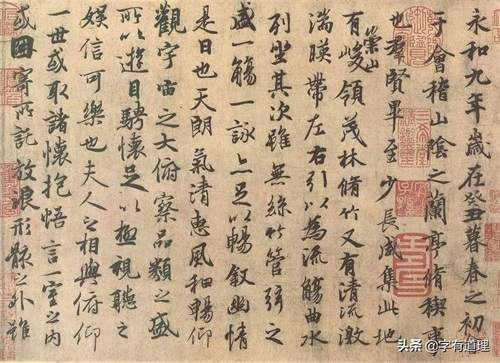 永和九年歲在癸丑暮春之初
于會稽山陰之蘭亭脩稧事
也羣賢畢至少長咸集此地
有崇山峻領茂林脩竹又有清流激
湍暎帶左右引以為流觴曲水
列坐其次雖無絲竹管弦之
盛一觴一詠亦足以暢敘幽情
是日也天朗氣清惠風和暢仰
觀宇宙之大俯察品類之盛
所以遊目騁懷足以極視聽之
娛信可樂也夫人之相與俯仰
一世或取諸懷抱悟言一室之內
或因寄所託放浪形骸之外雖
头条 @字有道理